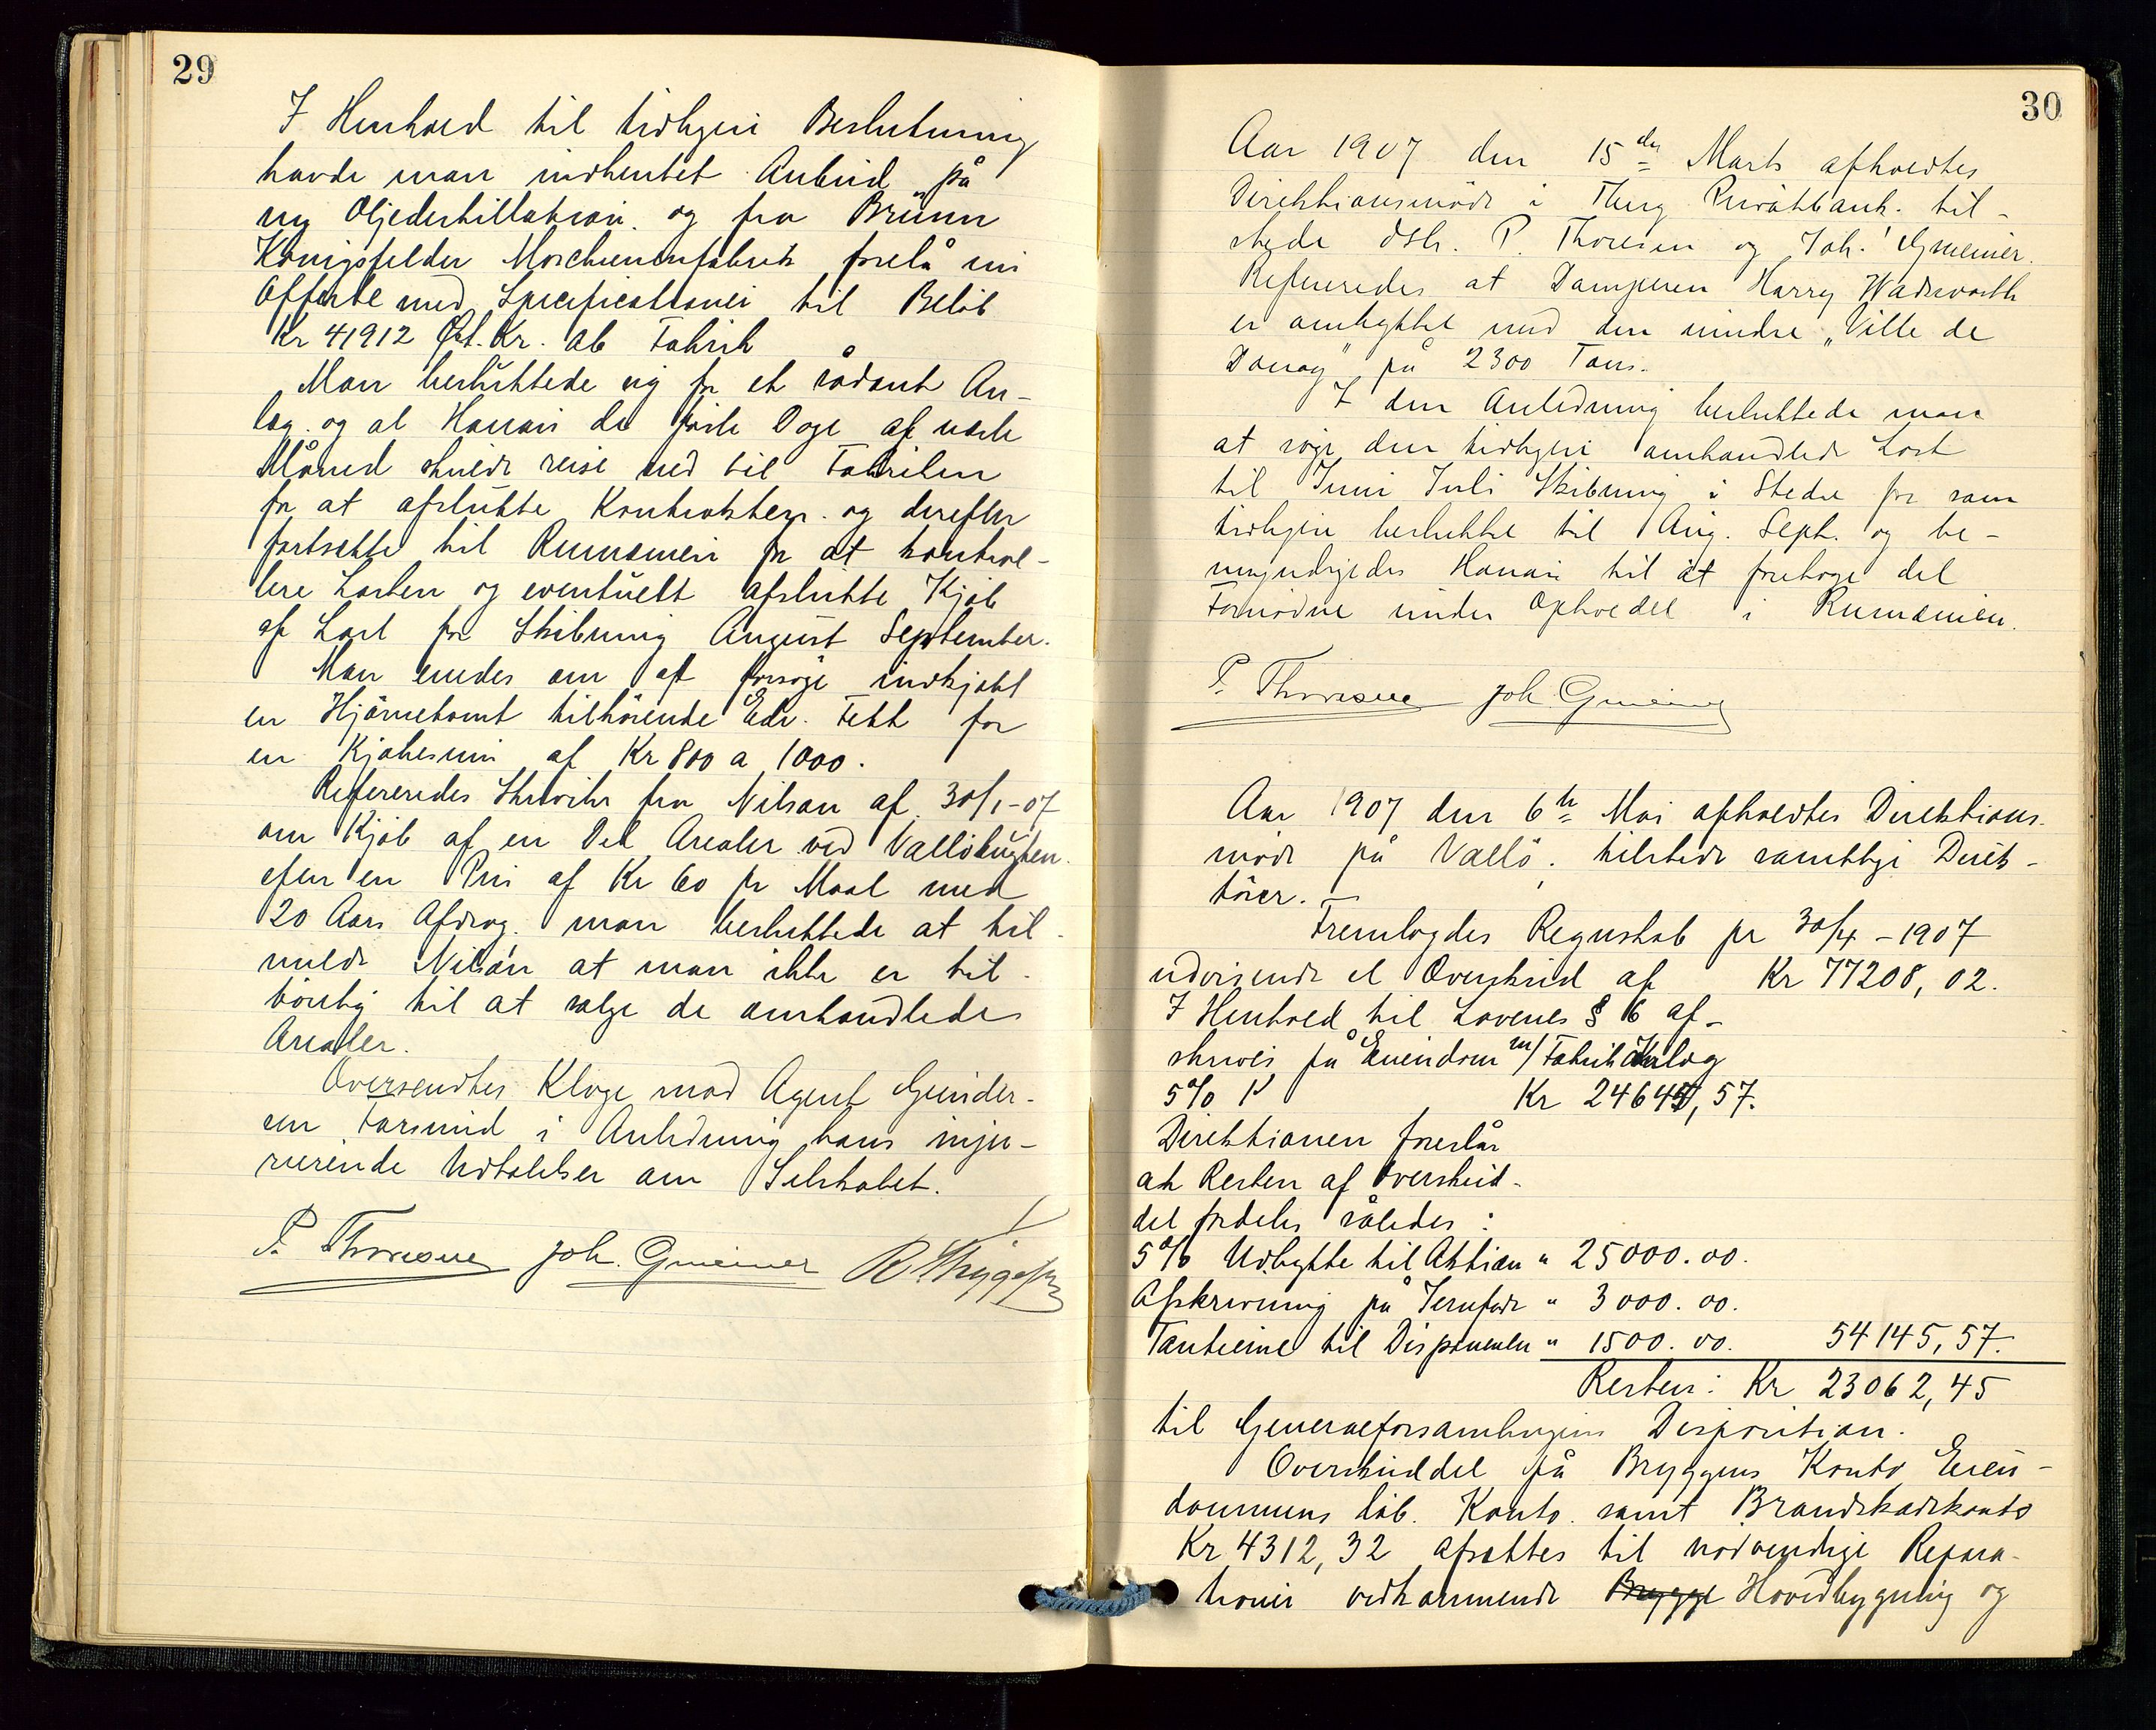 29
I Henhold til tidligere Beslutning
havde man indhentet Anbud på
ny Oljedestillation og fra Brünn
Königsfelder Maschienenfabrik forelå en
Offerte med Specificationer til Beløb
Kr 41912 Øst. Kr. ab Fabrik
Man besluttede sig for et sådant An-
læg og at Hanan de første Dage af næste
Måned skulde reise ned til Fabriken
for at afslutte Kontrakten og derefter
fortsætte til Rumænien for at kontrol-
lere Lasten og eventuelt afslutte Kjøb
af Last for Skibning August September.
Man enedes om at forsøge indkjøbt
en Hjørnetomt tilhørende Edv. Fett for
en Kjøbesum af Kr 800 a 1000.
Refereredes Skrivelse fra Nilsan af 30/1-07
om Kjøb af en Del Arealer ved Valløbugten
efter en Pris af Kr 60 pr Maal med
20 Aars Afdrag. man besluttede at til-
melde Nilsan at man ikke er til-
bøielig til at sælge de omhandlede
Arealer.
Oversendtes Klage mod Agent Gunder-
sen Farsund i Anledning hans inju-
rierende Udtalelser om Selskabet.
P. Thoresen Joh. Gmeiner
30
Aar 1907 den 15de Marts afholdtes
Direktionsmøde i Tbrg Privatbank. til-
stede dhr. P. Thoresen og Joh. Gmeiner.
Refereredes at Damperen Harry Wadsworth
er ombyttet med den mindre „Ville de
Douay" på 2300 Tons.
I den Anledning besluttede man
at søge den tidligere omhandlede Last
til Juni Juli Skibning i Stedet for som
tidligere besluttet til Aug. Sept. og be-
myndigedes Hanan til at foretage det
Fornødne under Opholdet i Rumænien.
P. Thoresen Joh Gmeiner
Aar 1907 den 6te Mai afholdtes Direktions-
møde på Vallø. tilstede samtlige Direk-
tører.
Fremlagdes Regnskab pr 30/4 - 1907
udvisende et Overskud af Kr 77208,02.
I Henhold til Lovenes § 6 af-
skrives på Eiendom m/ Fabrikanlæg
5% Kr 24645,57.
Direktionen foreslår
at Resten af Overskud-
det fordeles således:
5% Udbytte til Aktien " 25000.00.
Afskrivning på Jernfade " 3000.00.
Tantieme til Disponenten " 1500.00. 54145,57.
Resten: Kr 23062,45
til Generalforsamlingens Disposition.
Overskuddet på Bryggens Konto Eien-
dommens løb. Konto. samt Brandskadekonto
Kr 4312,32 afsættes til nødvendige Repara-
tioner vedkommende Brygge Hovedbygning og